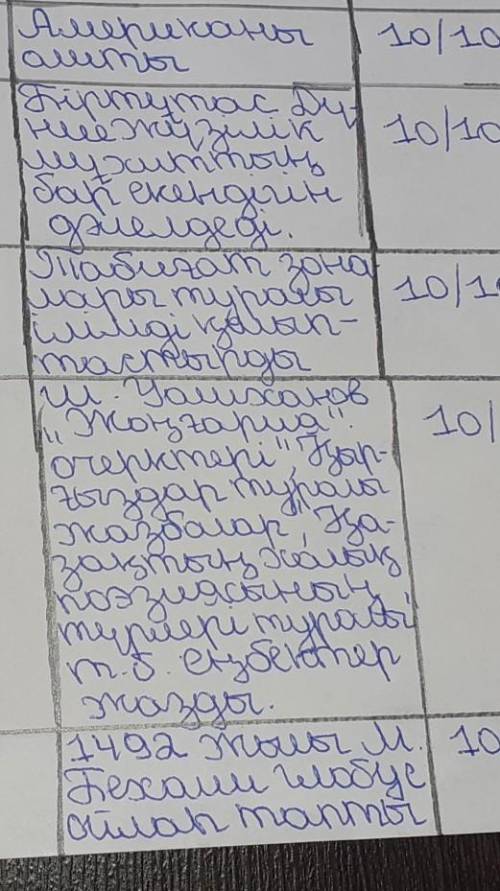 Американы
ашты
10/10
Біртұтас Дү-
ниежүзілік
мұхиттың
бар екендігін
дәлелдеді.
10/10
Табиғат зона-
лары туралы
ілімді қалып-
тастырды
10/1
Ш. Уәлиханов
"Жоңғария".
очерктері", "Қыр-
ғыздар туралы
жазбалар", "Қа-
зақтың халық
поэзиясының
түрлері туралы"
т.б. еңбектер
жазды.
10/
1492 жылы М.
Бехайм глобус
ойлап тапты
10